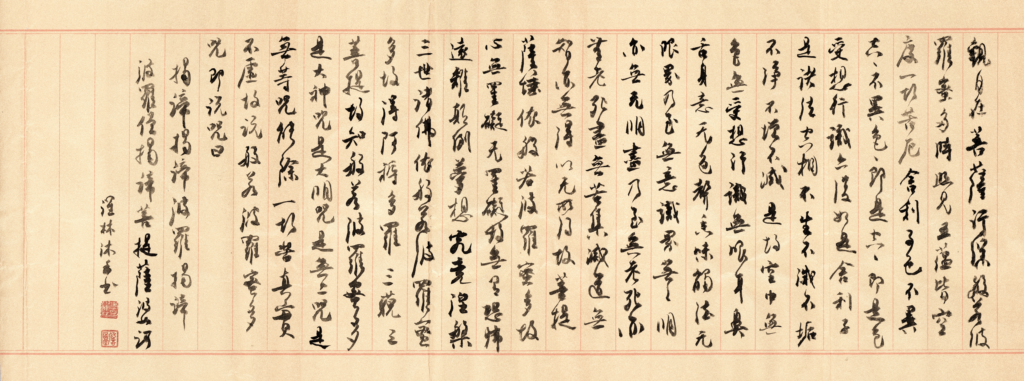 觀自在菩薩行深般若波
羅蜜多時照見五蘊皆空
度一切苦厄舍利子色不異
空空不異色色即是空空即是色
受想行識亦復如是舍利子
是諸法空相不生不滅不垢
不淨不增不減是故空中無
色無受想行識無眼耳鼻
舌身意无色聲香味觸法无
眼界乃至無意識界無無明
亦無无明盡乃至無老死亦
無老死盡無苦集滅道無
智亦無得以无所得故菩提
薩埵依般若波羅蜜多故
心無罣礙无罣礙故無有恐怖
遠離顛倒夢想究竟涅槃
三世諸佛依般若波羅蜜
多故得阿耨多羅三藐三
菩提故知般若波羅蜜多
是大神咒是大明咒是無上咒是
無等咒能除一切苦真實
不虛故說般若波羅蜜多
咒即說咒曰
揭諦揭諦波羅揭諦
波羅僧揭諦菩提薩婆訶
林沐書